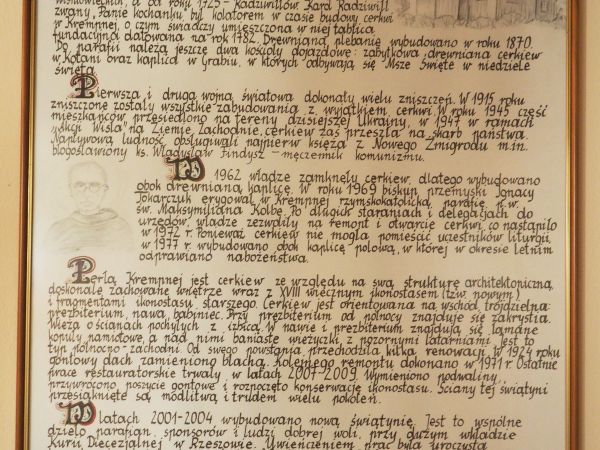 Wiśniowieckich, a od roku 1725 - Radziwiłłów. Karol Radziwiłł
zwany „Panie kochanku” był kolatorem w czasie budowy cerkwi
w Krempnej, o czym świadczy umieszczona w niej tablica
fundacyjna datowana na rok 1782. Drewnianą plebanię wybudowano w roku 1870.
Do parafii należą jeszcze dwa kościoły dojazdowe: zabytkowa drewniana cerkiew
w Kotani oraz kaplica w Grabiu, w których odbywają się Msze Święte w niedziele
święta.
Pierwsza i druga wojna światowa dokonały wielu zniszczeń. W 1915 roku
zniszczone zostały wszystkie zabudowania z wyjątkiem cerkwi. W roku 1945 część
mieszkańców przesiedlono na tereny dzisiejszej Ukrainy, w 1947 w ramach
„Akcji Wisła” na Ziemie Zachodnie, cerkiew zaś przeszła na skarb państwa.
Napływową ludność obsługiwali najpierw księża z Nowego Żmigrodu m.in.
błogosławiony ks. Władysław Findysz - męczennik komunizmu.
W 1962 władze zamknęły cerkiew, dlatego wybudowano
obok drewnianą kaplicę. W roku 1969 biskup przemyski Ignacy
Tokarczuk erygował w Krempnej rzymskokatolicką parafię p.w.
św. Maksymiliana Kolbe. Po długich staraniach i delegacjach do
urzędów, władze zezwoliły na remont i otwarcie cerkwi, co nastąpiło
w 1972 r. Ponieważ cerkiew nie mogła pomieścić uczestników liturgii,
w 1977 r. wybudowano obok kaplicę polową, w której w okresie letnim
odprawiano nabożeństwa.
Perłą Krempnej jest cerkiew ze względu na swą strukturę architektoniczną,
doskonale zachowane wnętrze wraz z XVIII wiecznym ikonostasem (tzw. nowym)
i fragmentami ikonostasu starszego. Cerkiew jest orientowana na wschód, trójdzielna:
prezbiterium, nawa, babiniec. Przy prezbiterium od północy znajduje się zakrystia.
Wieża o ścianach pochyłych z izbicą. W nawie i prezbiterium znajdują się łamane
kopuły namiotowe, a nad nimi baniaste wieżyczki z pozornymi latarniami. Jest to
typ północno-zachodni. Od swego powstania przechodziła kilka renowacji. W 1924 roku
gontowy dach zamieniono blachą. Kolejnego remontu dokonano w 1971 r. Ostatnie
prace restauratorskie trwały w latach 2007-2009. Wymieniono podwaliny,
przywrócono poszycie gontowe i rozpoczęto konserwację ikonostasu. Ściany tej świątyni
przesiąknięte są modlitwą i trudem wielu pokoleń.
W latach 2001-2004 wybudowano nową świątynię. Jest to wspólne
dzieło parafian, sponsorów i ludzi dobrej woli, przy dużym wkładzie
Kurii Diecezjalnej w Rzeszowie. Uwieńczeniem prac była uroczysta